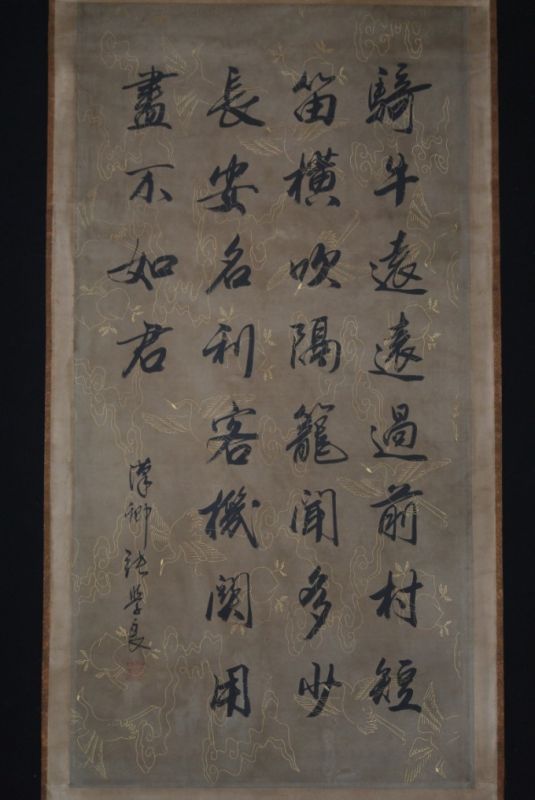 騎牛遠遠過前村短
笛橫吹隔籠聞多少
長安名利客機関用
盡不如君
漢卿張學良